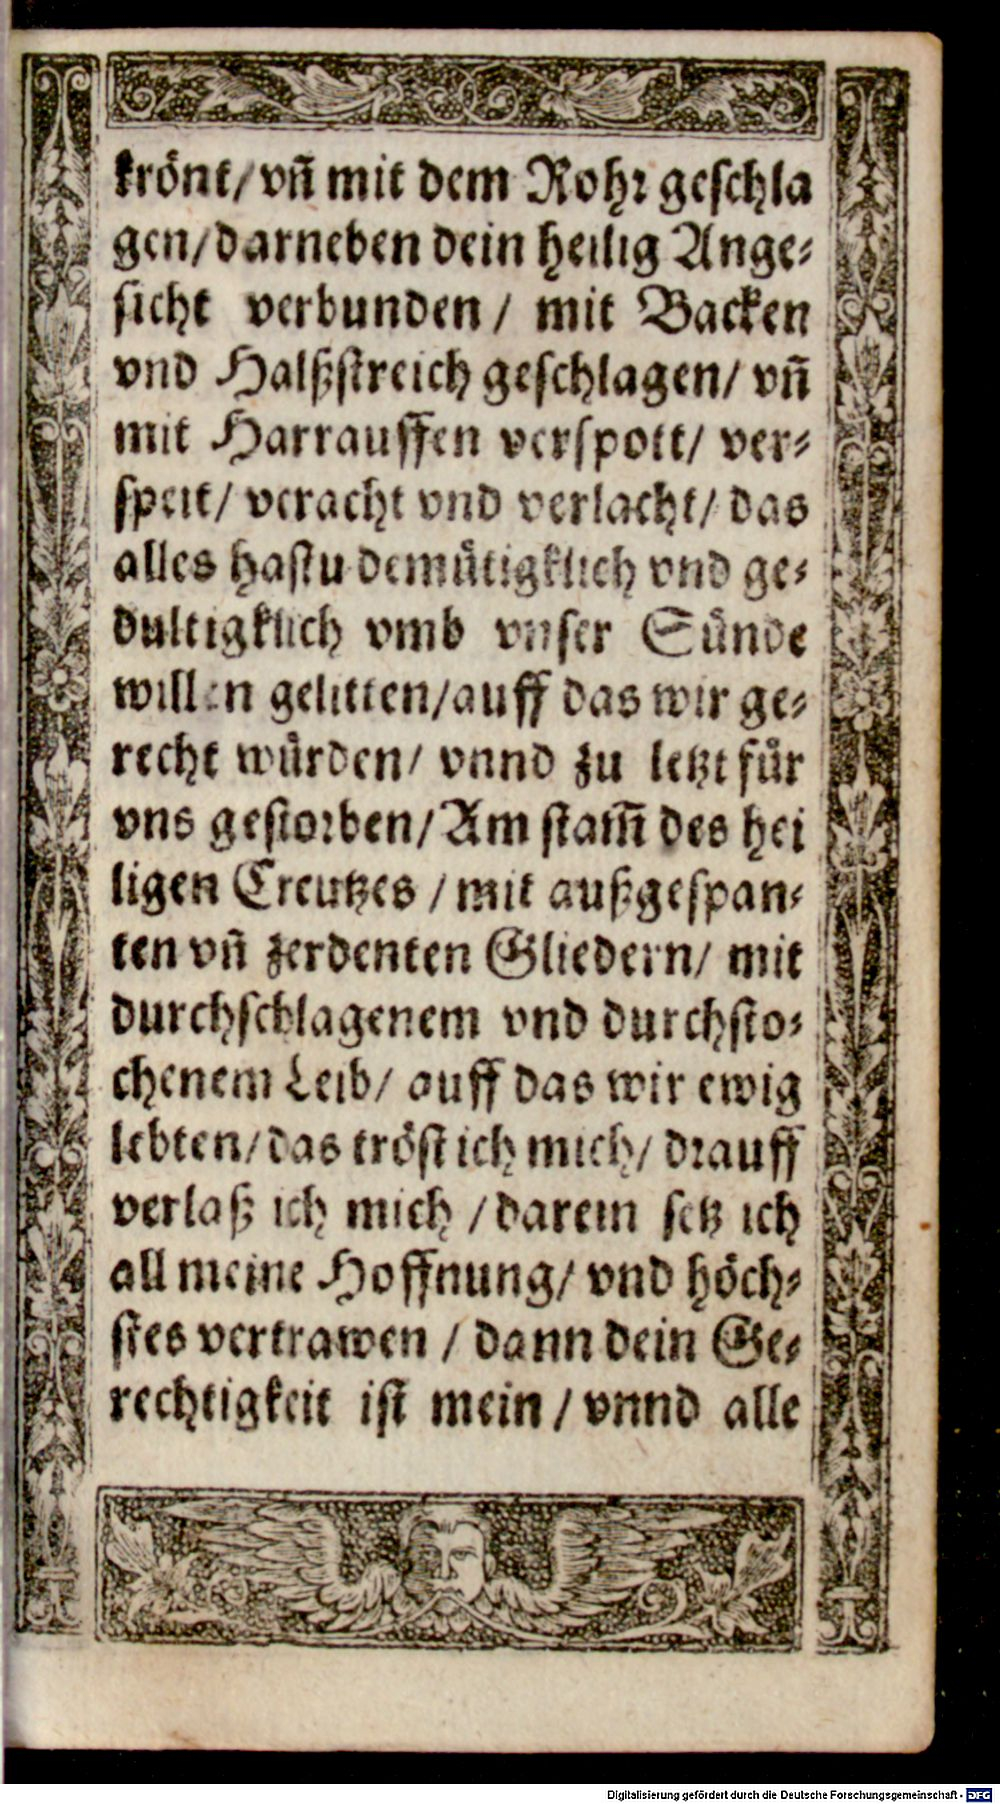 krönt/ vñ mit dem Rohꝛ geſchla
gen/ darneben dein heilig Ange⸗
ſicht verbunden / mit Backen
vnd Halßſtreich geſchlagen/ vñ
mit Harrauffen verſpott/ ver⸗
ſpeit/ veracht vnd verlacht/ das
alles haſtu demuͤtigklich vnd ge⸗
dultigklich vmb vnſer Suͤnde
willen gelitten/ auff das wir ge⸗
recht wuͤrden/ vnnd zu letzt fuͤr
vns geſtoꝛben/ Am ſtam̃ des hei
ligen Creutzes / mit außgeſpan⸗
ten vñ zerdenten Gliedern/ mit
durchſchlagenem vnd durchſto⸗
chenem Leib/ auff das wir ewig
lebten/ das tröſt ich mich/ dꝛauff
verlaß ich mich / darein ſetz ich
all meine Hoffnung/ vnd höch⸗
ſtes vertrawen / dann dein Ge⸗
rechtigkeit iſt mein / vnnd alle
Digitalisierung gefördert durch die Deutsche Forschungsgemeinschaft - DFG